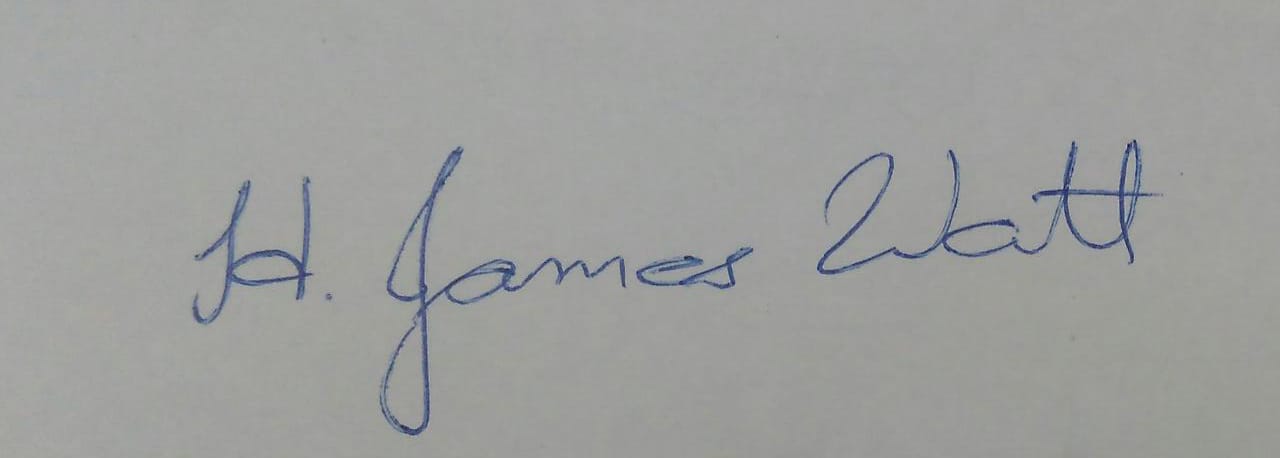 H. James Watt